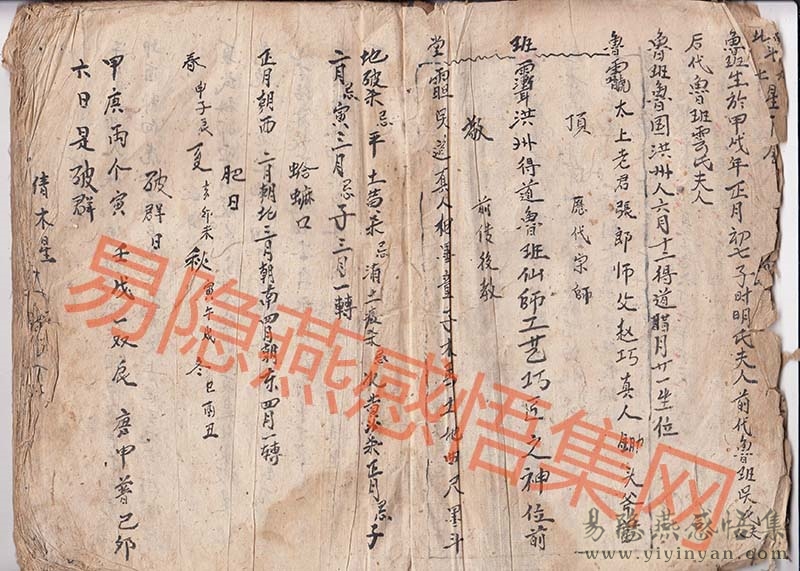 北斗七星
魯班生於甲戊年正月初七子时明氏夫人前代魯班吴氏夫
后代魯班雲氏夫人
魯班魯国洪州人六月十三得道腊月廿一坐位
魯 太上老君張郎师父赵巧真人 头斧
頂 歷代宗師
班 洪州得道魯班仙师工艺巧匠之神位前
敬 前傳後教
堂 吴道真人 童子木馬土地曲尺墨斗
地破柴忌平土黄柴忌 柴忌 黄 柴正月忌子
二月忌寅三月忌子三月一轉
蛤蟆口
正月朝西二月朝北三月朝南四月朝东四月一轉
肥日
春甲子辰夏亥卯未秋寅午戌冬巳酉丑
破群日
甲庚丙个寅壬戊 辰庚甲 己卯
六日是破群
倩木星
易隐燕感悟集网
易隐燕感悟集
www.yiyinyan.com